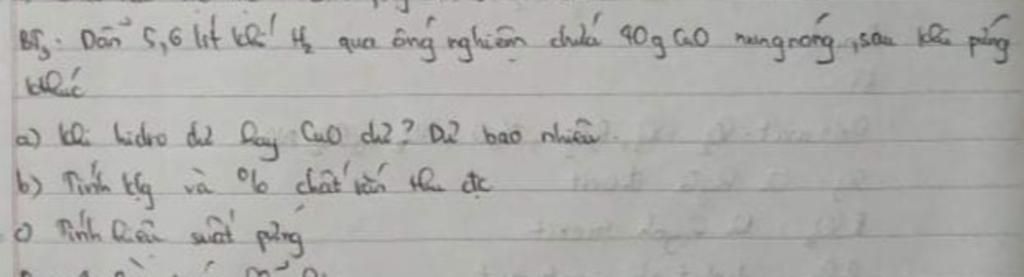 BT3: Dẫn 5,6 lít khí H2 qua ống nghiệm chứa 40g CuO nung nóng, sau khi pứng
khác
a) khí hidro dư hay CuO dư? Dư bao nhiêu.
b) Tính klg và % chất rắn thu đc
c) Tính hiệu suất pứng